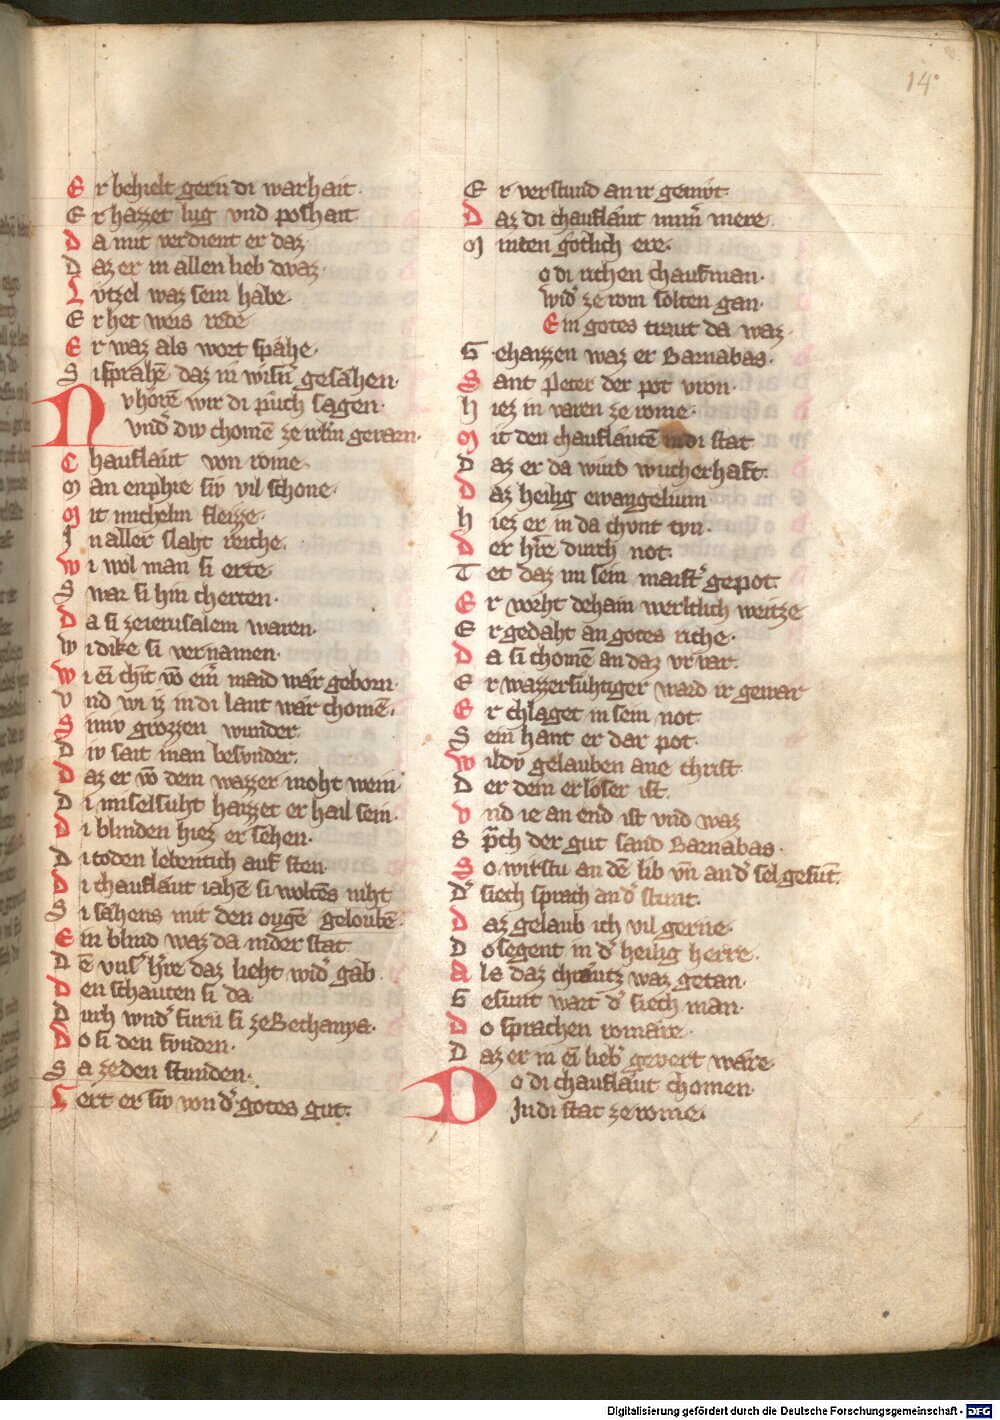 14
E r behielt gern di warhait·
E r hazzet lug vnd poshait·
D a mit verdient er daz
D az er in allen lieb dwaz
L vtzel waz sein habe·
E r het weis rede
E r waz als wort spähe·
S i sprahē daz in wisñ gesahen·
N v hörē wir di půch sagen·
vnd̾ div chomē ze
C hauflaut von rome·
M an enphie siv vil schone·
M it micheln fleizze·
I n aller slaht reiche·
W i wol man si erte·
S war si hin cherten·
D a si ze ierusalem waren·
W i dike si vernamen·
W i ein chīt vō ein̄ maid wär geborn·
V nd wi iz in di laut wär chomē·
S iniv grozzen wunder·
D iv sait man besvnder·
D az er vō dem wazzer moht wein·
D i miselsuht haizzet er hail sein·
D i blinden hiez er sehen·
D i toden lebentich auf sten·
D i chauflaut iahē si woltēs niht
S i sähens mit den ovgē geloubē·
E in blind waz da nider stat
D ē vnser h̄re daz lieht wid̾ gab
D en schauten si da
D urh wnd̾ furn si ze Bethanya·
D o si den fvnden·
S a ze den stunden·
L ert er siv von d̾ gotes gut·
E r verstund an ir gemůt·
D az di chauflaut nimm̄ mere·
M inten götlich ere·
o di richen chaufman·
wid̾ ze rom solten gan·
E in gotes traut da waz·
G ehaizzen waz er Barnabas·
S ant Peter der pot vron·
H iez in varen ze rome·
M it den chauflautē in di stat
D az er da wurd wucherhaft·
D az heilig ewangelium
H iez er in da chvnt tvn·
D er h̄re durch not·
T et daz im sein maist̾ gepot
E r vorht dehain werltlich weitze
E r gedaht an gotes riche·
D a si chomē an daz vrvar·
E r wazzersuhtiger ward ir gewar
E r chlaget in sein not·
S ein hant er dar pot·
W ildv gelauben ane christ·
D er dein erlöser ist·
V nd ie an end ist vnd waz
S p̄ch der gut sand Barnabas·
S o wirstu an dē lib vn̄ an d̾ sel gesūt·
D̾ siech sprach an d̾ stunt·
D az gelaub ich vil gerne·
D o segent in d̾ heilig herre·
A ls daz chräutz waz getan·
G esunt wart d̾ siech man·
D o sprachen romäre·
D az er in ein lieb̾ gevert wäre·
D o di chauflaut chomen·
In di stat ze rome·
Digitalisierung gefördert durch die Deutsche Forschungsgemeinschaft - DFG